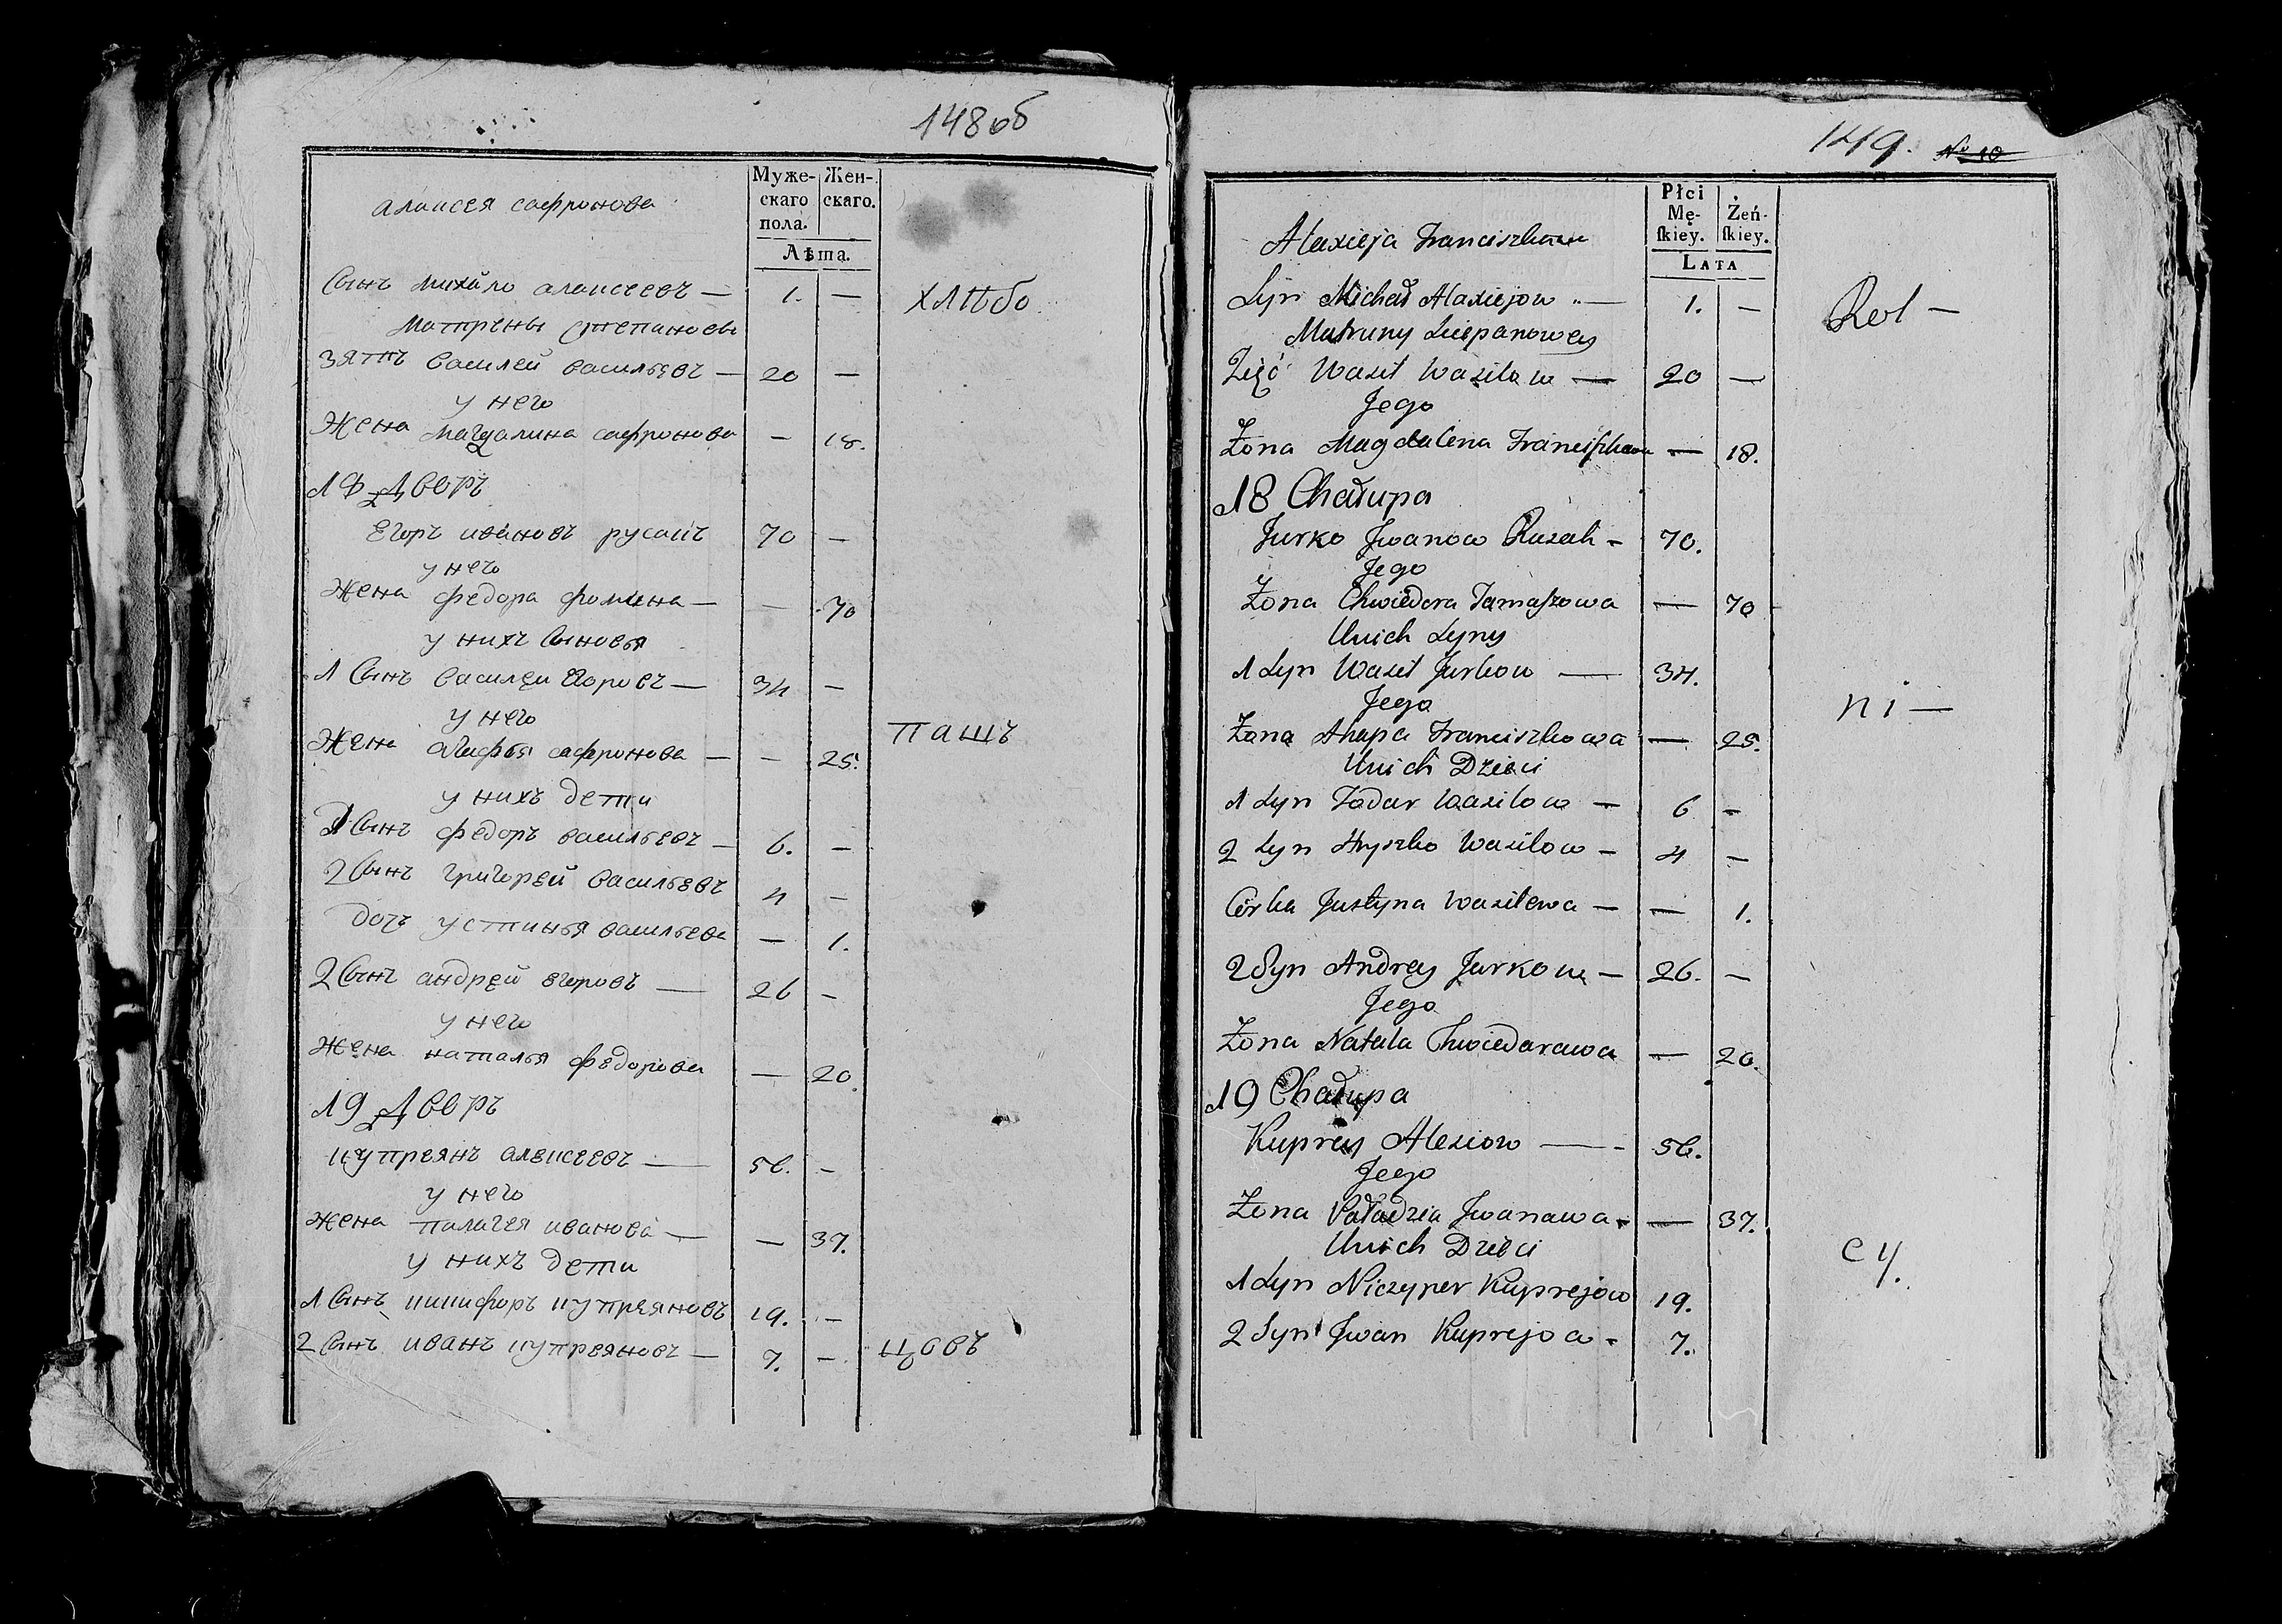 148об
Муже-
скаго
пола.
Жен-
скаго.
Лѣта.
алаксея сафронова
Сынъ михайло алаксеевъ — 1. —
хлѣбо
матрены степановы
зять василей васильевъ — 20 —
у него
Жена магдалина сафронова — 18.
18 Дворъ
Егоръ ивановъ русакъ 70 —
у него
Жена федора фомина — — 70
у нихъ сыновья
1 Сынъ василеи Егоровъ — 34 —
у него
пашъ
Жена сафронова — — 25.
у нихъ дети
1 Сынъ федоръ васильевъ — 6. —
2 Сынъ григорей васильевъ 4 —
дочь устинья васильева — 1.
2 Сынъ андрей егоровъ — 26 —
у него
Жена наталья федорова — 20.
19 Дворъ
купреянъ алексеевъ — 56. —
у него
жена палагея иванова — — 37.
у нихъ дети
1 Сынъ никифоръ купреяновъ 19. —
2 Сынъ иванъ купреяновъ — 7. —
цовъ
149. № 10
Płci
Mę-
ſkiey.
Żeń-
ſkiey.
LATA
Alaxieja Franciszkowa
Syn Michał Alaxiejow — 1. —
Rol —
Matruny Sciepanowey
Zięć Wasil Wasilow — 20 —
Jego
Żona Magdalena Franciſzkowa — 18.
18 Chałupa
Jurko Jwanow Rusak — 70.
Jego
Żona Chwiedora Tamaſzowa — 70
Unich Syny
1 Syn Wasil Jurkow — 34.
Jego
ni —
Żona Ahapa Franciszkowa — 25.
Unich Dzieci
1 Syn Fodar Wasilow — 6 —
2 Syn Hryszko Wasilow — 4 —
Córka Justyna Wasilewa — — 1.
2 Syn Andrey Jurkow — 26. —
Jego
Żona Natala Chwiedarawa — 20.
19 Chałupa
Kuprey Alexiow — 56.
Jego
Żona Jwanawa — — 37.
Unich Dzieci
cy.
1 Syn Niczyper Kuprejow 19.
2 Syn Jwan Kuprejow — 7.